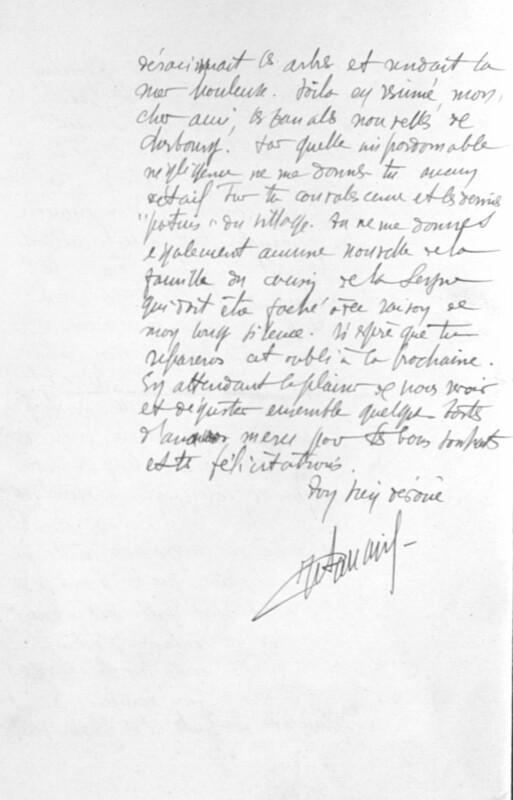 déracinait les arbres et rendait la
mer houleuse. Voilà en résumé, mon
cher ami, les banales nouvelles de
Cherbourg. Par quelle impardonable
négligence ne me donnes tu aucun
détail sur ta convalescence et les derniers
"potins" du village. Tu ne me donnes
également aucune nouvelle de la
famille du cousin de la Seyne
qui doit être faché avec raison de
mon long silence. J'espère que tu
répareras cet oubli à la prochaine.
En attendant le plaisir de nous revoir
et déguster ensemble quelques
mères pour les bons souhaits
et félicitations.
Ton bien dévoué